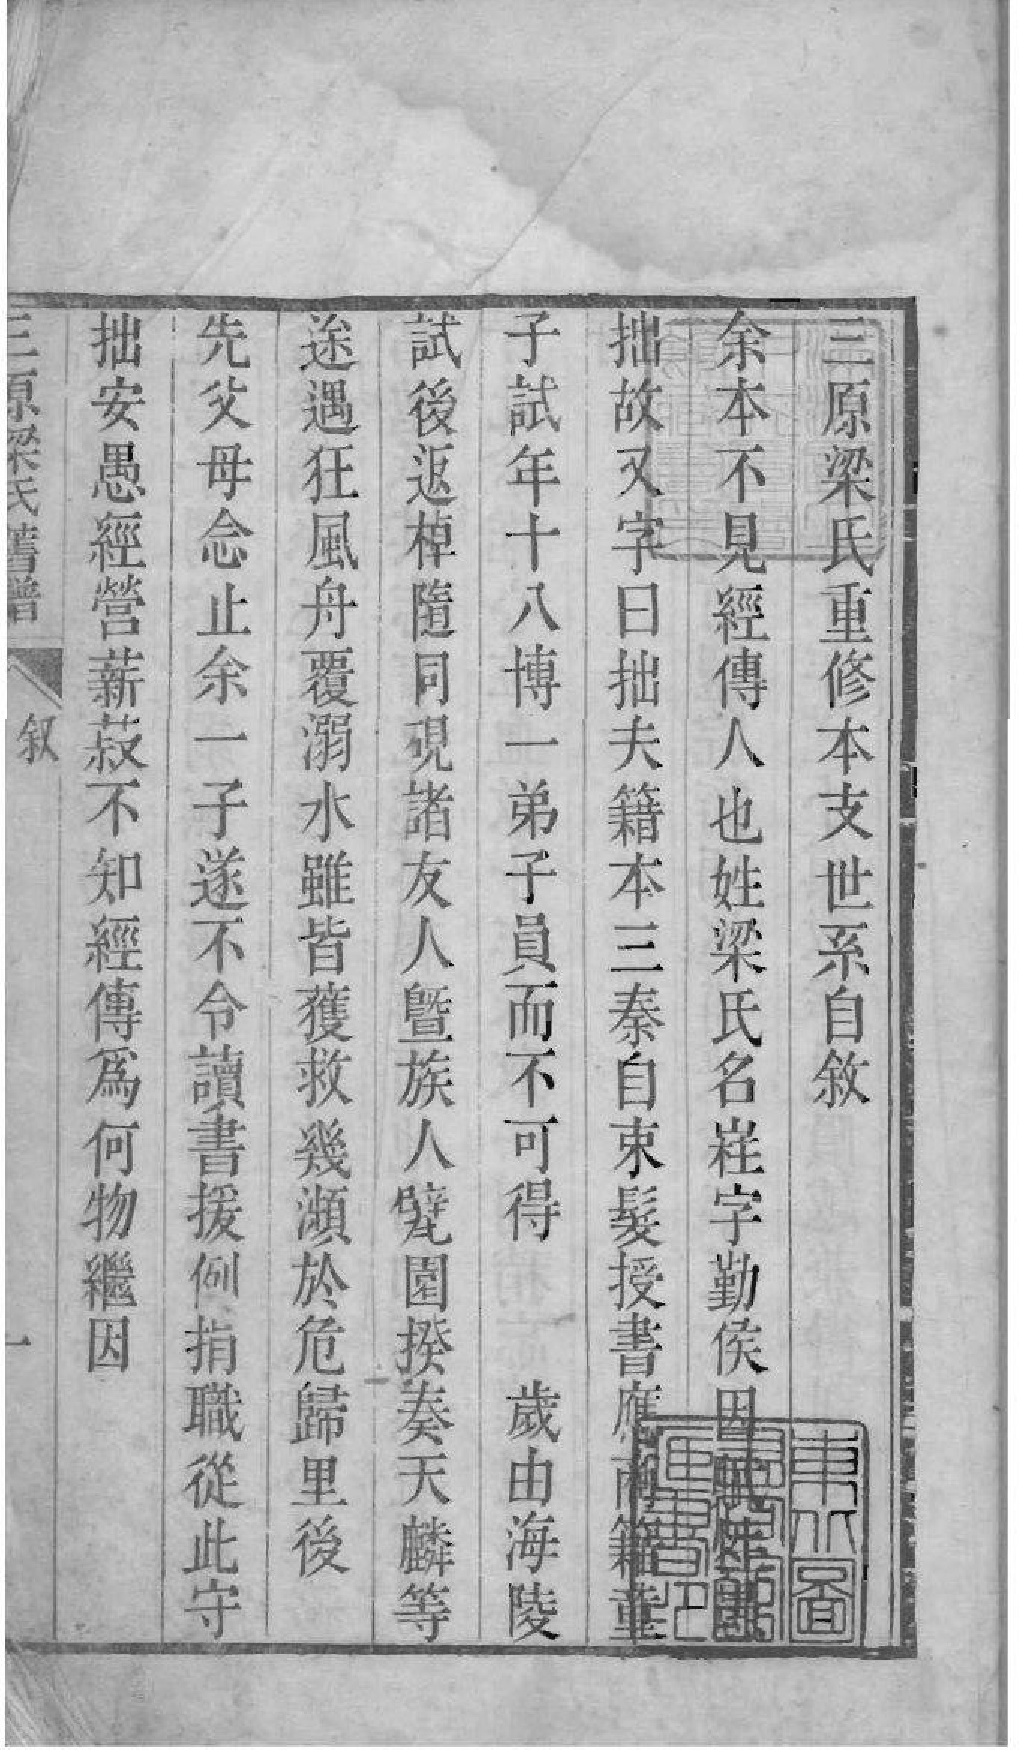 三原梁氏重修本支世系自敘
余本不見經傳人也姓梁氏名嵀字勤侯因
拙故又字曰拙夫籍本三秦自束髮授書應商籍童
子試年十八博一弟子員而不可得　歲由海陵
試後返棹隨同硯諸友人暨族人甓園揆奏天麟等
途遇狂風舟覆溺水雖皆獲救幾瀕於危歸里後
先父母念止余一子遂不令讀書援例捐職從此守
拙安愚經營薪菽不知經傳爲何物繼因
三原梁氏舊譜
叙
一